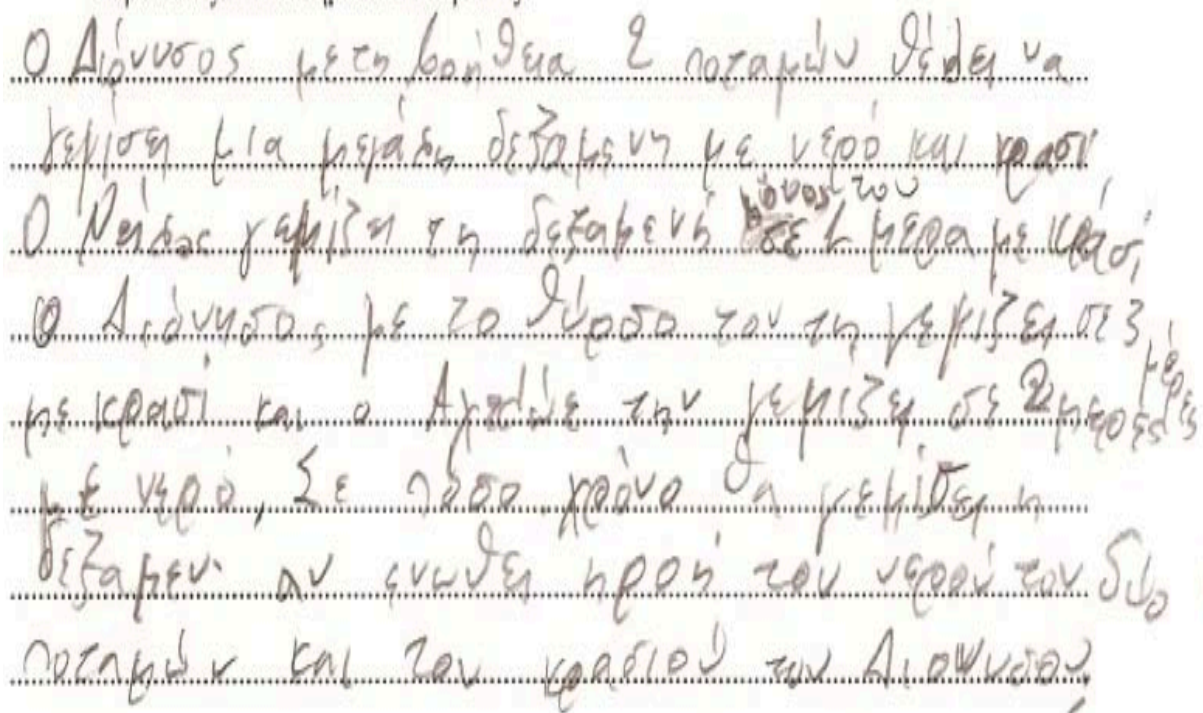 Ο Διόνυσος με τη βοήθεια 2 ποταμών θέλει να
γεμίσει μια μεγάλη δεξαμενη με νερό και κρασι
Ο Νείλος γεμίζει τη δεξαμενή μόνος του σε 1 μερα με κρασί,
Ο Διόνησος με το θύρσο του τη γεμίζει σε 3 μέρες
με κρασί και ο Αχελώος την γεμίζει σε 2 μερες
με νερό, Σε πόσο χρόνο θα γεμίσει η
δεξαμεν. αν ενωθει η ροή του νερού των δύο
ποταμών και του κρασιού του Διονυσου,